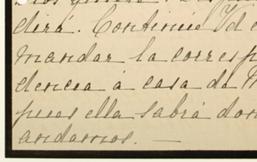 dirá. Continúe Vd e
mandar la corresp
dencia á casa de M
pues ella sabrá don
andamos. —